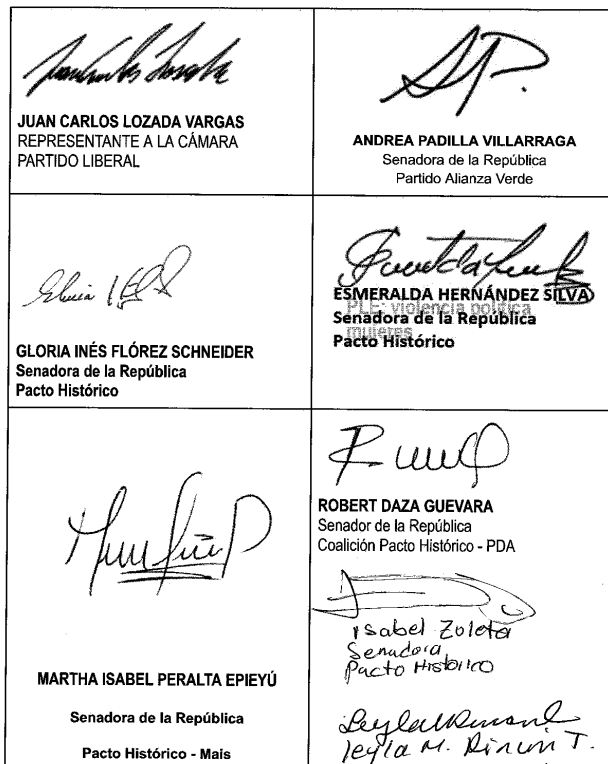 JUAN CARLOS LOZADA VARGAS
REPRESENTANTE A LA CÁMARA
PARTIDO LIBERAL
ANDREA PADILLA VILLARRAGA
Senadora de la República
Partido Alianza Verde
GLORIA INÉS FLÓREZ SCHNEIDER
Senadora de la República
Pacto Histórico
ESMERALDA HERNÁNDEZ SILVA
PLE: violencia política
Senadora de la República
mujeres
Pacto Histórico
MARTHA ISABEL PERALTA EPIEYÚ
Senadora de la República
Pacto Histórico - Mais
ROBERT DAZA GUEVARA
Senador de la República
Coalición Pacto Histórico - PDA
Isabel Zuleta
Senadora
Pacto Histórico
Leyla M. Rincón T.